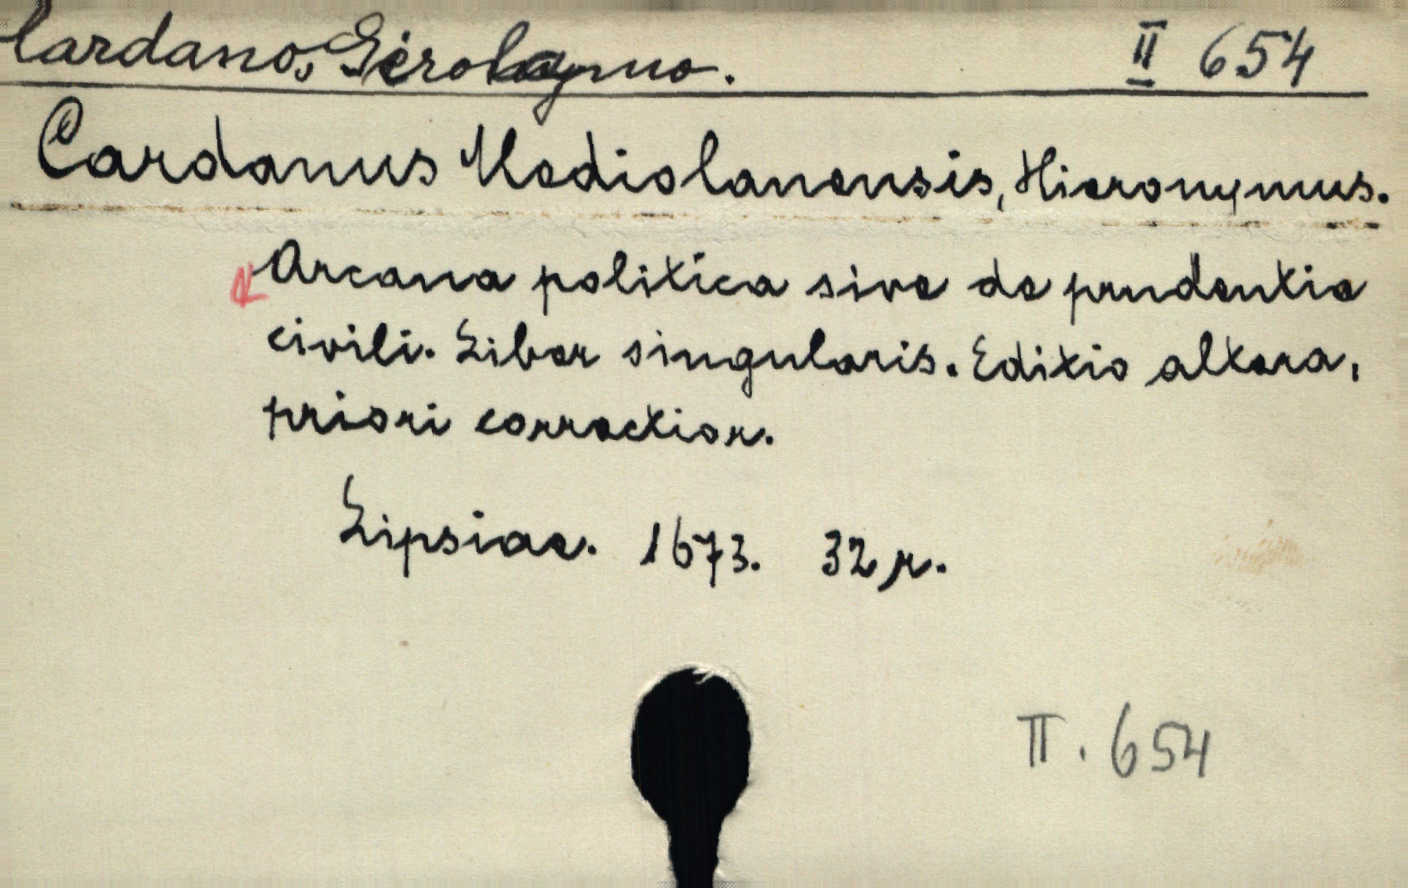 Cardano, Girolamo. II 654
Cardanus Mediolanensis, Hieronymus.
Arcana politica sive de prudentia
civili. Liber singularis. Editio altera,
priori correctior.
Lipsiae. 1673. 32 p.
II. 654